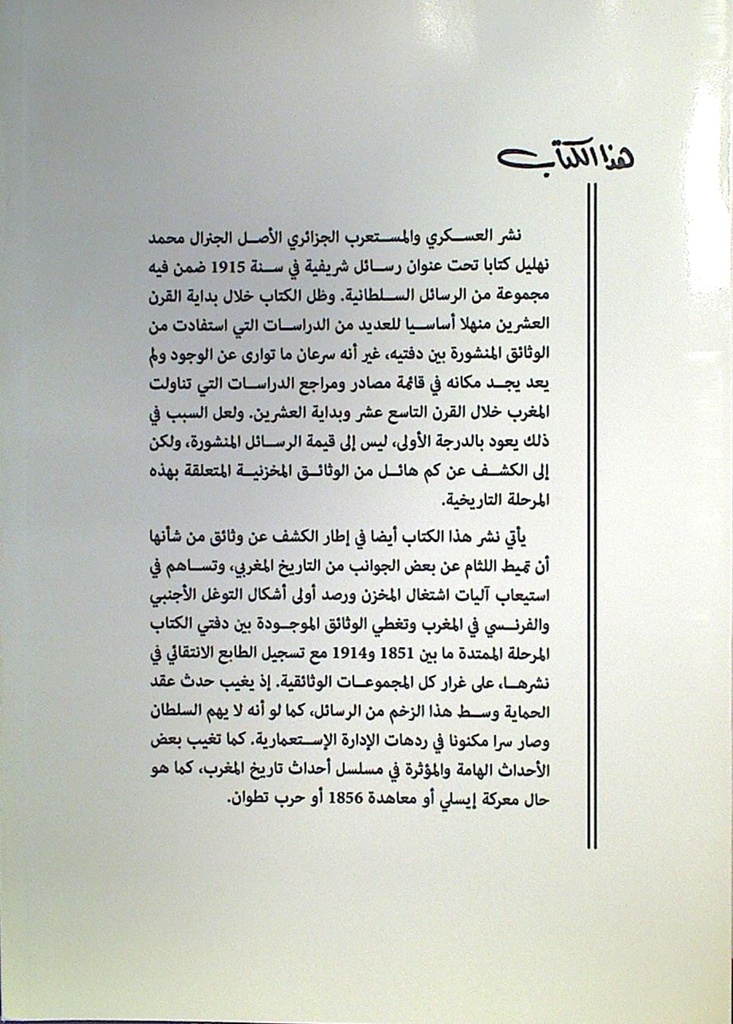 هذا الكتاب
نشر العسكري والمستعرب الجزائري الأصل الجنرال محمد
نهليل كتابا تحت عنوان رسائل شريفية في سنة 1915 ضمن فيه
مجموعة من الرسائل السلطانية. وظل الكتاب خلال بداية القرن
العشرين منهلا أساسيا للعديد من الدراسات التي استفادت من
الوثائق المنشورة بين دفتيه، غير أنه سرعان ما توارى عن الوجود ولم
يعد يجد مكانه في قائمة مصادر ومراجع الدراسات التي تناولت
المغرب خلال القرن التاسع عشر وبداية العشرين. ولعل السبب في
ذلك يعود بالدرجة الأولى، ليس إلى قيمة الرسائل المنشورة، ولكن
إلى الكشف عن كم هائل من الوثائق المخزنية المتعلقة بهذه
المرحلة التاريخية.
يأتي نشر هذا الكتاب أيضا في إطار الكشف عن وثائق من شأنها
أن تميط اللثام عن بعض الجوانب من التاريخ المغربي، وتساهم في
استيعاب آليات اشتغال المخزن ورصد أولى أشكال التوغل الأجنبي
والفرنسي في المغرب وتغطي الوثائق الموجودة بين دفتي الكتاب
المرحلة الممتدة ما بين 1851 و1914 مع تسجيل الطابع الانتقائي في
نشرها، على غرار كل المجموعات الوثائقية. إذ يغيب حدث عقد
الحماية وسط هذا الزخم من الرسائل، كما لو أنه لا يهم السلطان
وصار سرا مكنونا في ردهات الإدارة الإستعمارية. كما تغيب بعض
الأحداث الهامة والمؤثرة في مسلسل أحداث تاريخ المغرب، كما هو
حال معركة إيسلي أو معاهدة 1856 أو حرب تطوان.